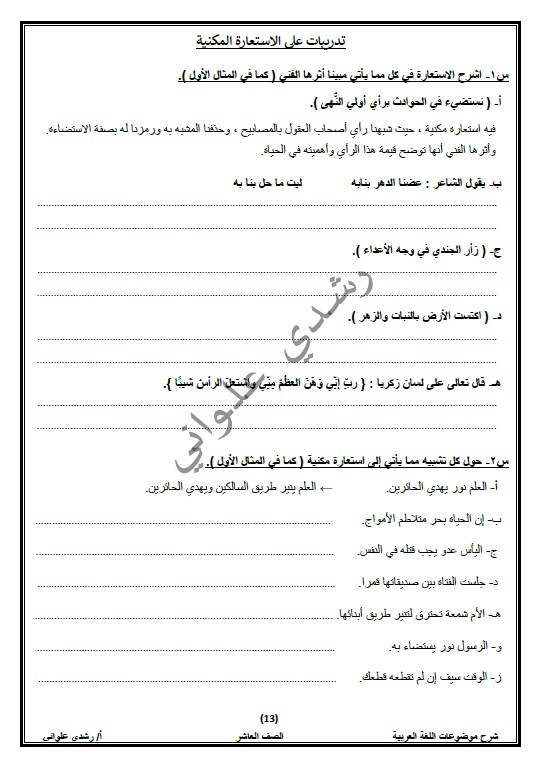 تدريبات على الاستعارة المكنية
س١- اشرح الاستعارة في كل مما يأتي مبينا أثرها الفني ( كما في المثال الأول ).
أ- ( نستضيء في الحوادث برأي أولي النُّهى ).
فيه استعارة مكنية ، حيث شبهنا رأي أصحاب العقول بالمصابيح ، وحذفنا المشبه به ورمزنا له بصفة الاستضاءة.
وأثرها الفني أنها توضح قيمة هذا الرأي وأهميته في الحياة.
ب- يقول الشاعر : عضنا الدهر بنابه ليت ما حل بنا به
ج- ( زأر الجندي في وجه الأعداء ).
د- ( اكتست الأرض بالنبات والزهر ).
هـ- قال تعالى على لسان زكريا : { ربِّ إنِّي وَهَنَ العظْمُ مِنِّي وَاشْتعلَ الرأسُ شَيبًا }.
س٢- حول كل تشبيه مما يأتي إلى استعارة مكنية ( كما في المثال الأول ).
أ- العلم نور يهدي الحائرين. ← العلم ينير طريق السالكين ويهدي الحائرين.
ب- إن الحياة بحر متلاطم الأمواج.
ج- اليأس عدو يجب قتله في النفس.
د- جلست الفتاة بين صديقاتها قمرا.
هـ- الأم شمعة تحترق لتنير طريق أبنائها.
و- الرسول نور يستضاء به.
ز- الوقت سيف إن لم تقطعه قطعك.
(13)
شرح موضوعات اللغة العربية الصف العاشر أ/ رشدي علواني
رشدي علواني